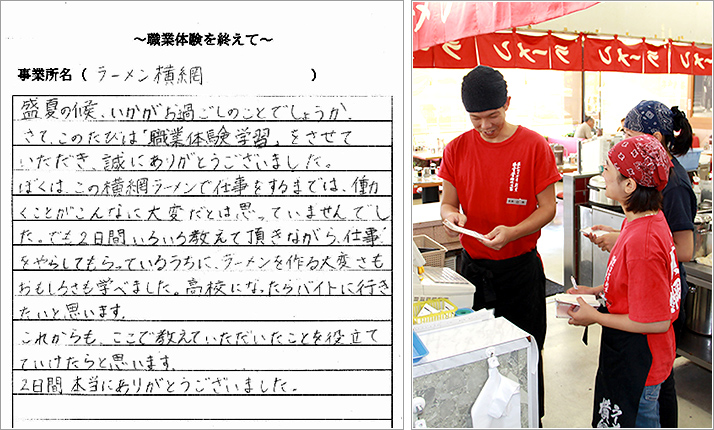 ～職業体験を終えて～
事業所名（ ラーメン横綱 ）
盛夏の候、いかがお過ごしのことでしょうか。
さて、このたびは「職業体験学習」をさせて
いただき、誠にありがとうございました。
ぼくは、この横綱ラーメンで仕事をするまでは、働
くことがこんなに大変だとは思っていませんでし
た。でも2日間いろいろ教えて頂きながら、仕事
をやらしてもらっているうちに、ラーメンを作る大変さも
おもしろさも学べました。高校になったらバイトに行き
たいと思います。
これからも、ここで教えていただいたことを役立て
ていけたらと思います。
2日間本当にありがとうございました。
ラーメン
ラーメン